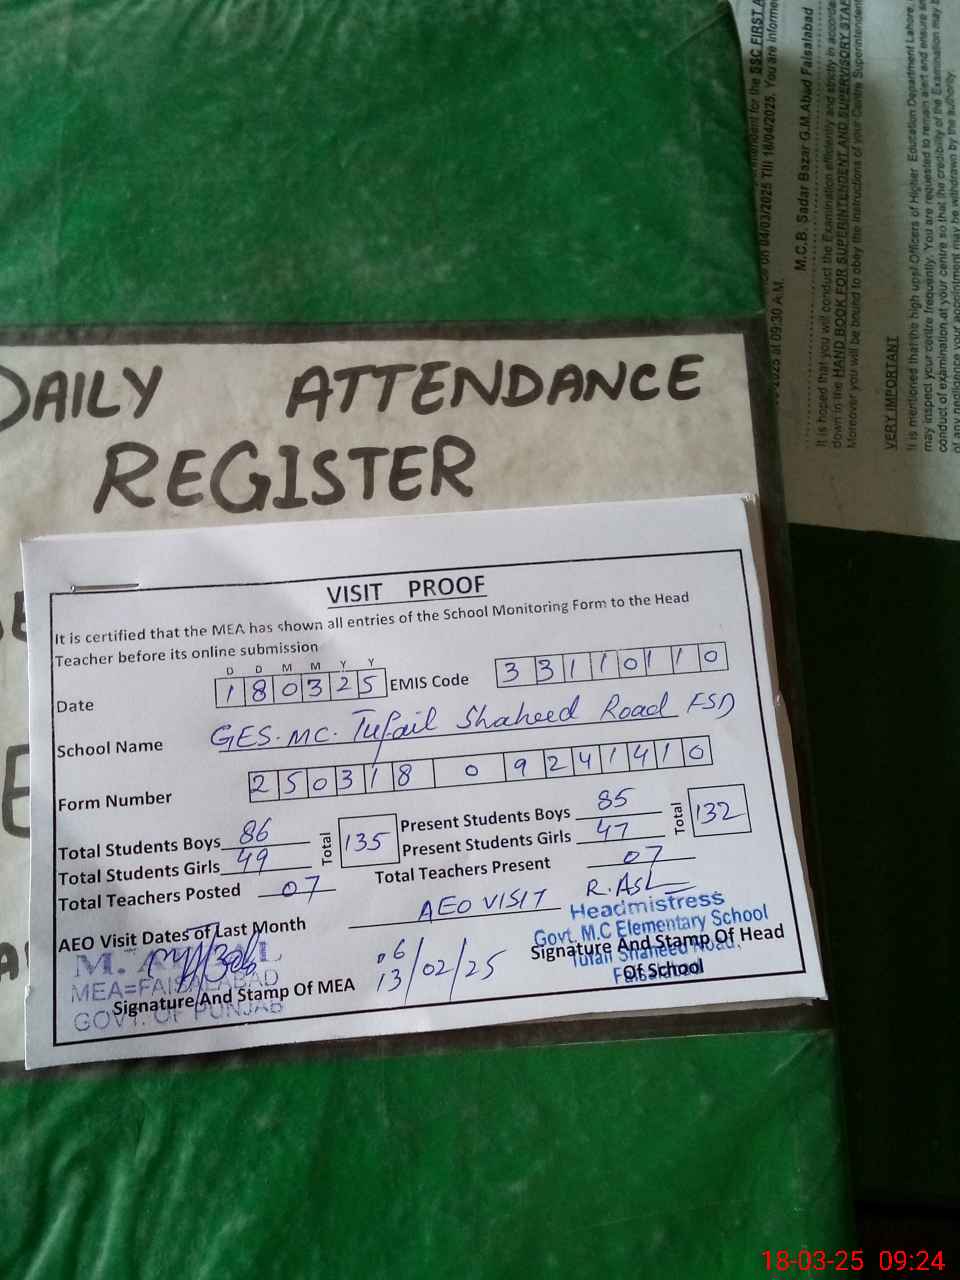 DAILY ATTENDANCE
REGISTER
VISIT PROOF
It is certified that the MEA has shown all entries of the School Monitoring Form to the Head
Teacher before its online submission
D D M M Y Y
Date 1 8 0 3 2 5 EMIS Code 3 3 1 1 0 1 1 0
School Name GES. MC. Tufail Shaheed Road FSD
Form Number 2 5 0 3 1 8 0 9 2 4 1 4 1 0
Total Students Boys 86 Total 135 Present Students Boys 85 Total 132
Total Students Girls 49 Present Students Girls 47
Total Teachers Posted 07 Total Teachers Present 07
AEO Visit Dates of Last Month AEO VISIT
06
13/02/25
Headmistress
Govt. M.C Elementary School
Signature And Stamp Of Head
Of School
Tufail Shaheed Road.
Faisalabad
MEA=FAISALABAD
Signature And Stamp Of MEA
GOVT. OF PUNJAB
SSC FIRST
on 04/03/2025 Till 18/04/2025. You are informed
at 09:30 A.M.
M.C.B. Sadar Bazar G.M.Abad Faisalabad
It is hoped that you will conduct the Examination efficiently and strictly in
down in the HAND BOOK FOR SUPERINTENDENT AND SUPERVISORY
Moreover you will be bound to obey the instructions of your Centre Superintendent
VERY IMPORTANT
It is mentioned that the high ups/ Officers of Higher Education Department Lahore,
may inspect your centre frequently. You are requested to remain alert and ensure
conduct of examination at your centre so that the credibility of the Examination may
of any negligence your appointment may be withdrawn by the authority.
18-03-25 09:24